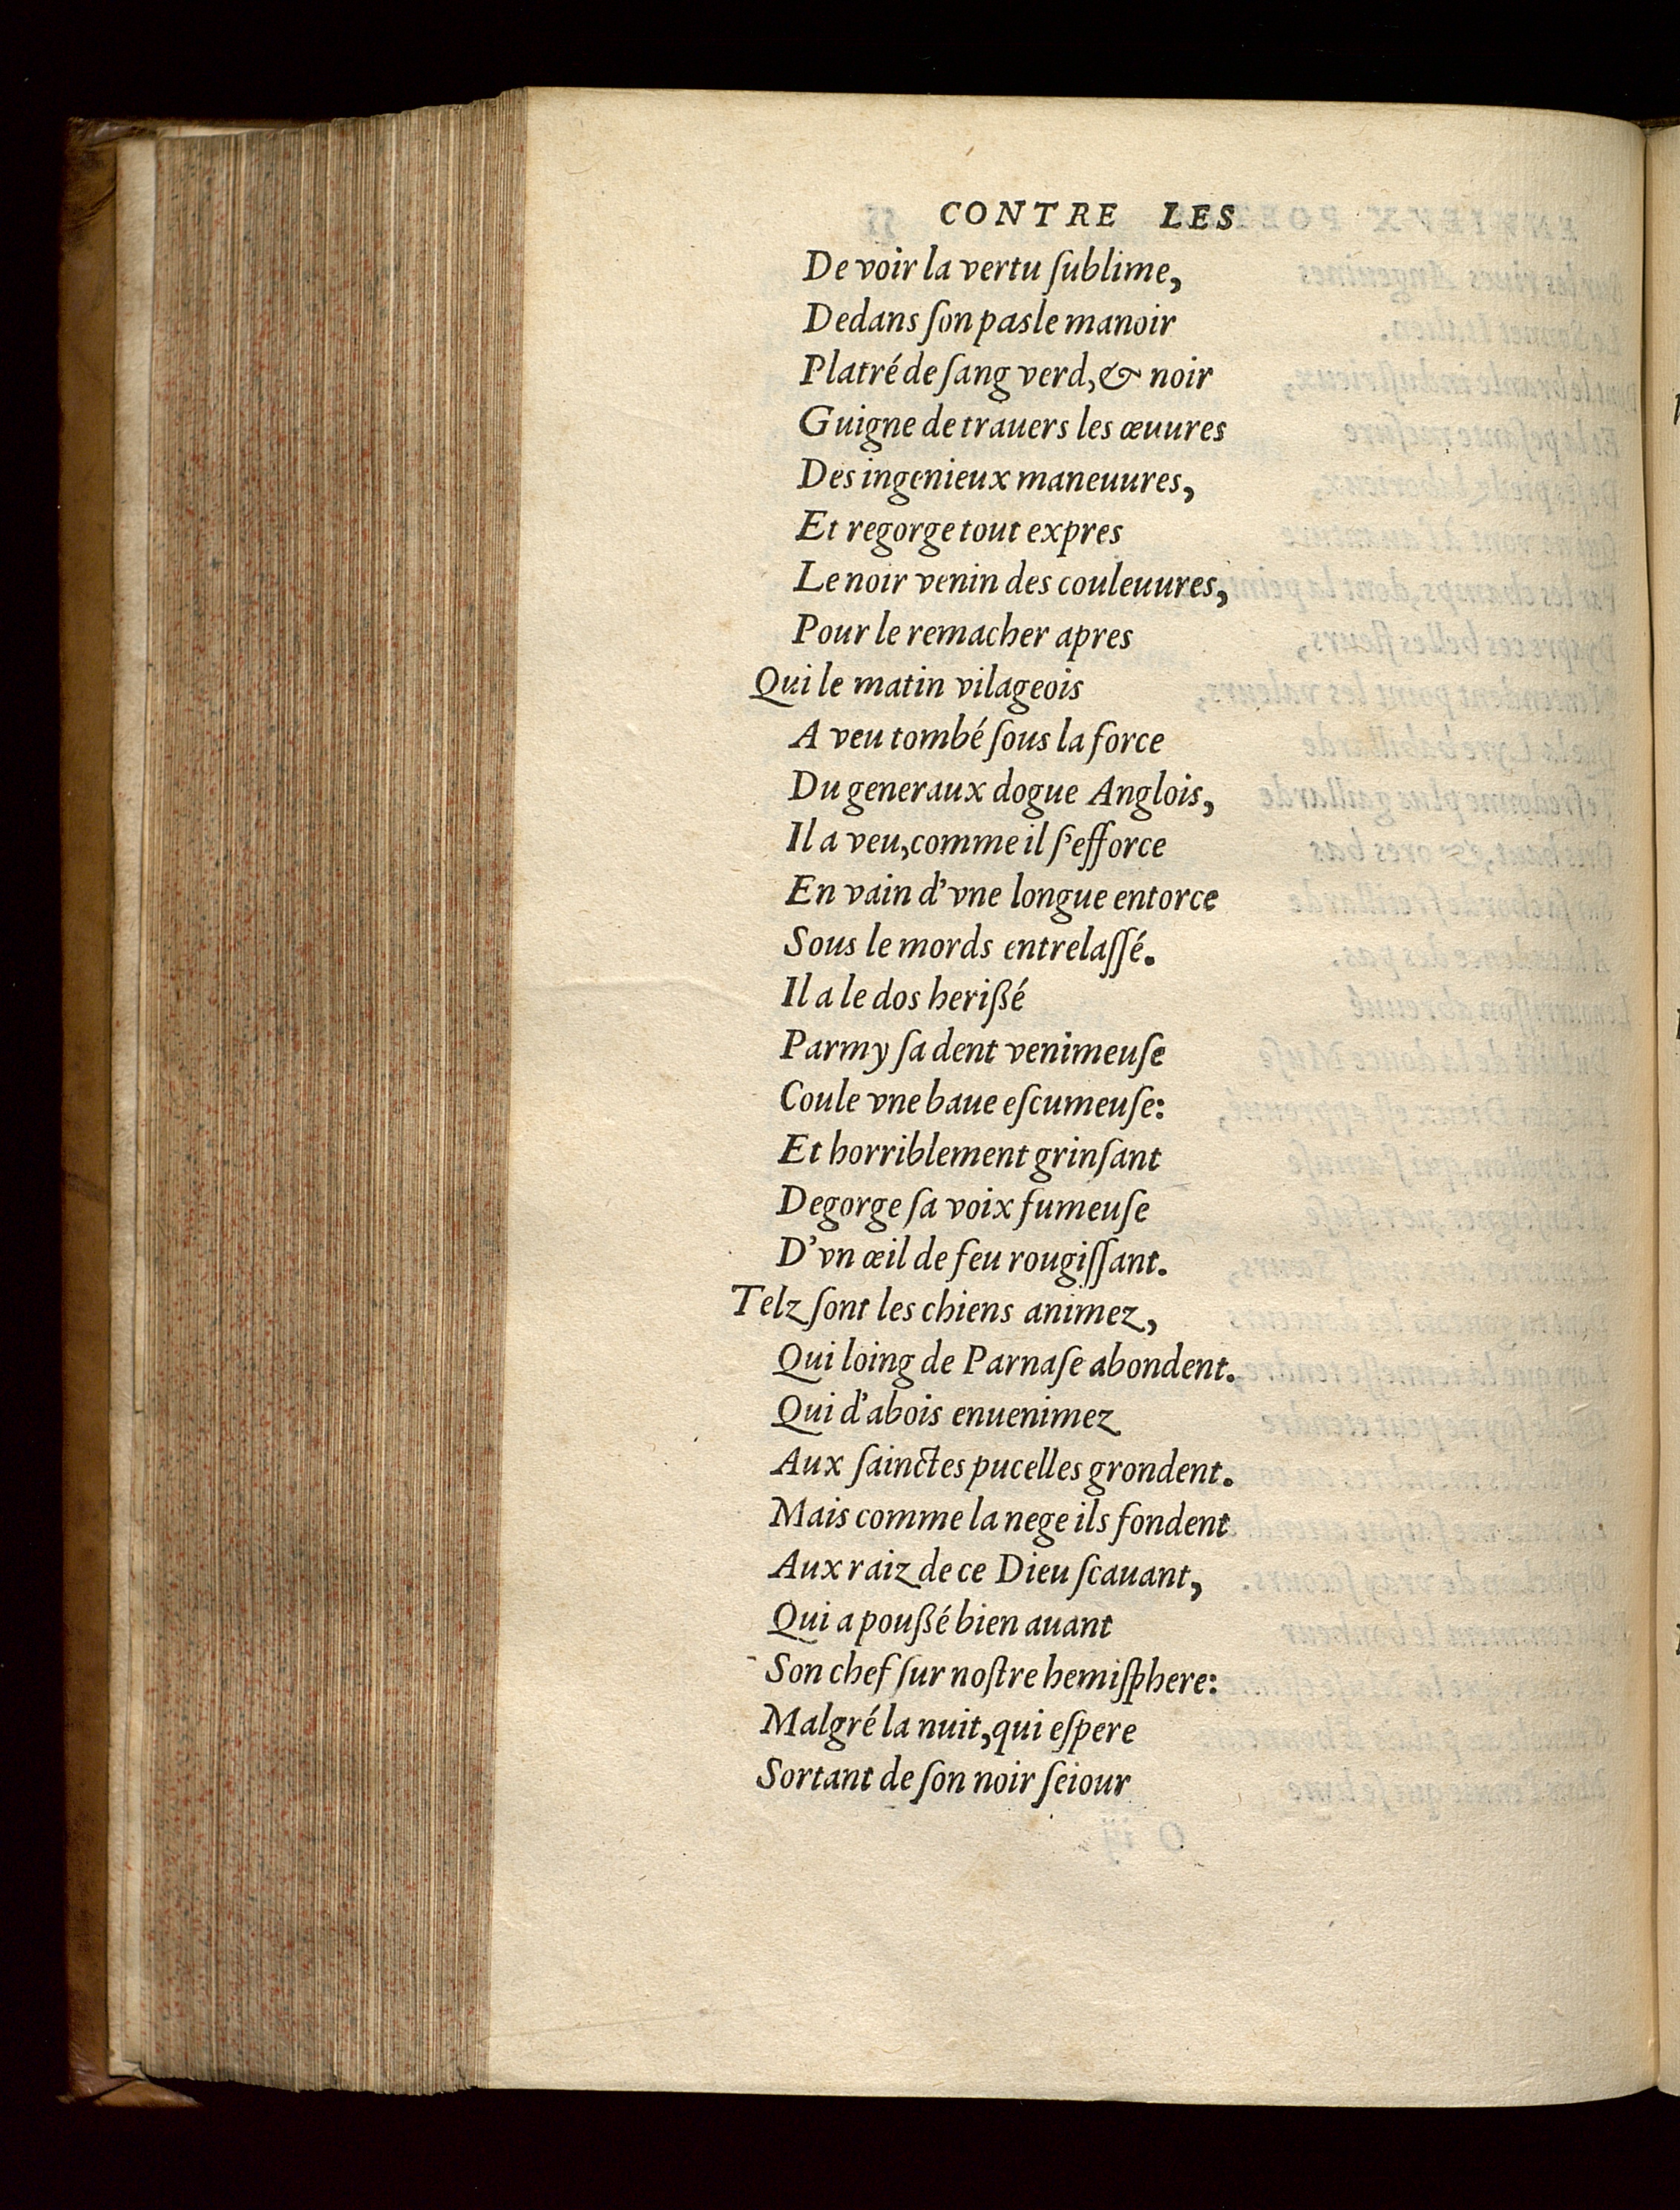 CONTRE LES
De voir la vertu ſublime,
Dedans ſon pasle manoir
Platré de ſang verd, & noir
Guigne de trauers les œuures
Des ingenieux maneuures,
Et regorge tout expres
Le noir venin des couleuures,
Pour le remacher apres
Qui le matin vilageois
A veu tombé ſous la force
Du generaux dogue Anglois,
Il a veu, comme il ſ'efforce
En vain d'vne longue entorce
Sous le mords entrelaſſé.
Il a le dos herißé
Parmy ſa dent venimeuſe
Coule vne baue eſcumeuſe:
Et horriblement grinſant
Degorge ſa voix fumeuſe
D'vn œil de feu rougiſſant.
Telz ſont les chiens animez,
Qui loing de Parnaſe abondent.
Qui d'abois enuenimez
Aux ſainctes pucelles grondent.
Mais comme la nege ils fondent
Aux raiz de ce Dieu ſcauant,
Qui a poußé bien auant
Son chef ſur noſtre hemiſphere:
Malgré la nuit, qui eſpere
Sortant de ſon noir ſeiour